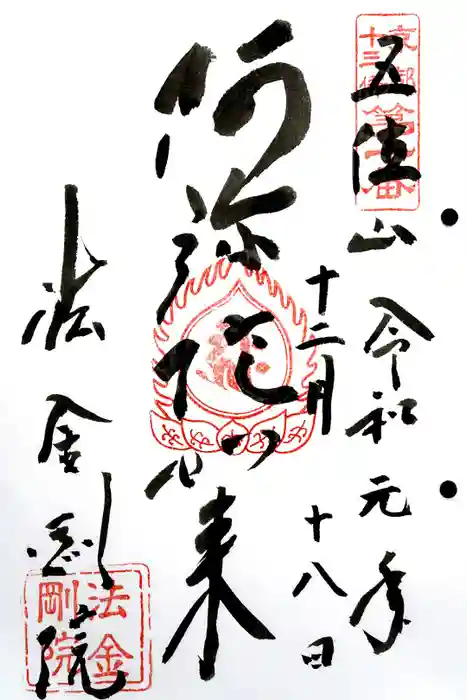 京都
十三佛
第十番
五位山
令和元年
十二月
十八日
阿弥陀如来
法金剛院
法金
剛院